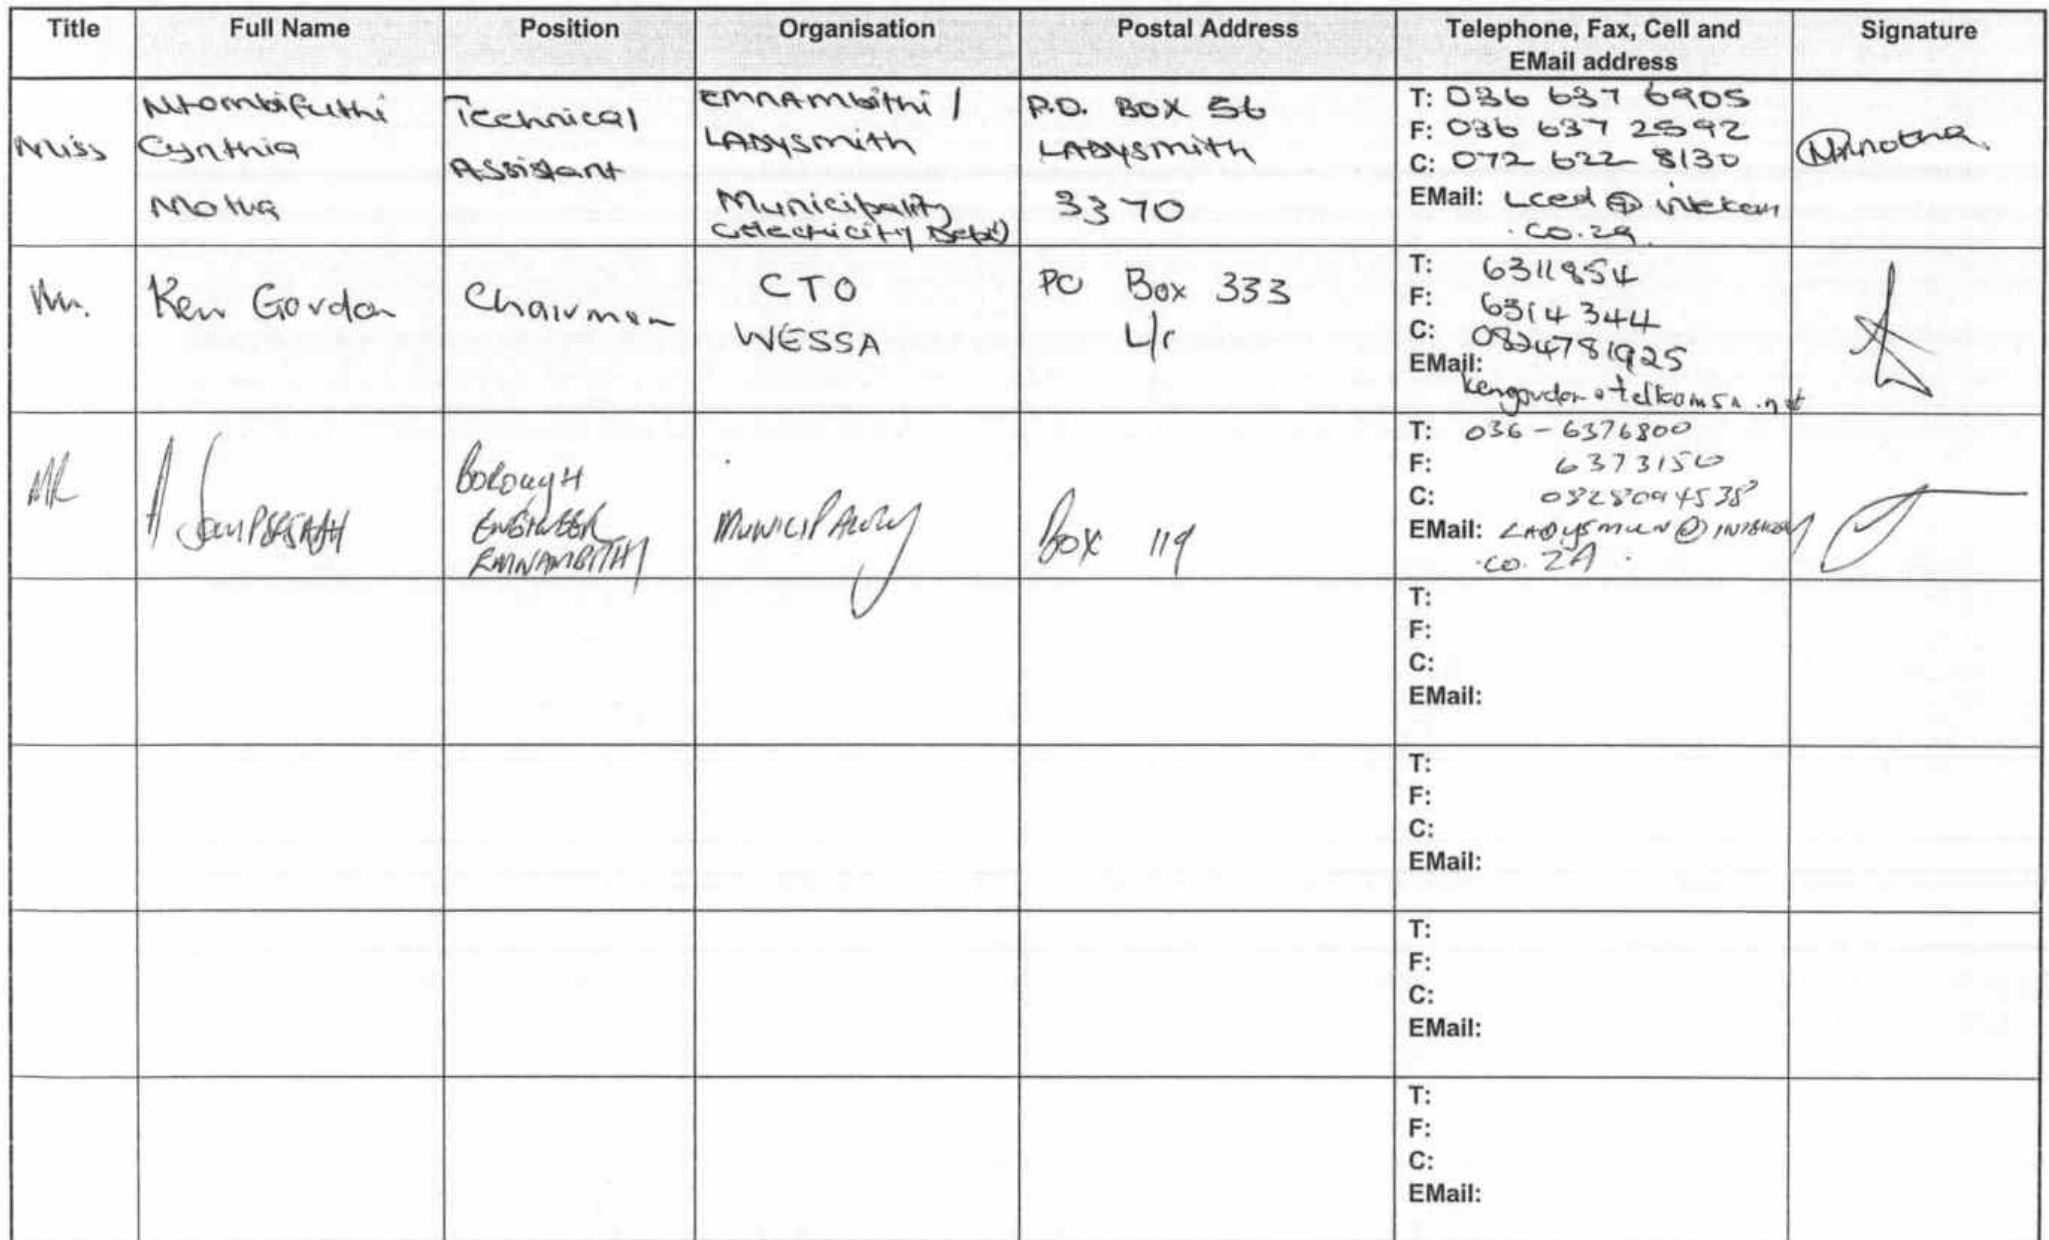 Title Full Name Position Organisation Postal Address Telephone, Fax, Cell and EMail address Signature
Miss
Ntombifuthi
Cynthia
Motha
Technical
Assistant
EMNAMBITHI /
LADYSMITH
Municipality
(Electricity Dept)
P.O. BOX 56
LADYSMITH
3370
T: 036 637 6905
F: 036 637 2592
C: 072 622 8130
EMail: Lced @
.co.za
Mr.
Ken Gordon
Chairman
CTO
WESSA
PO Box 333
L/s
T: 6311954
F: 6314344
C: 0824781925
EMail:
kengordon@telkomsa.net
MR
A
BOROUGH
ENGINEER
EMNAMBITHI
MUNICIPALITY
Box 119
T: 036-6376800
F: 6373150
C:
EMail:
.co.ZA.
T:
F:
C:
EMail:
T:
F:
C:
EMail:
T:
F:
C:
EMail:
T:
F:
C:
EMail: